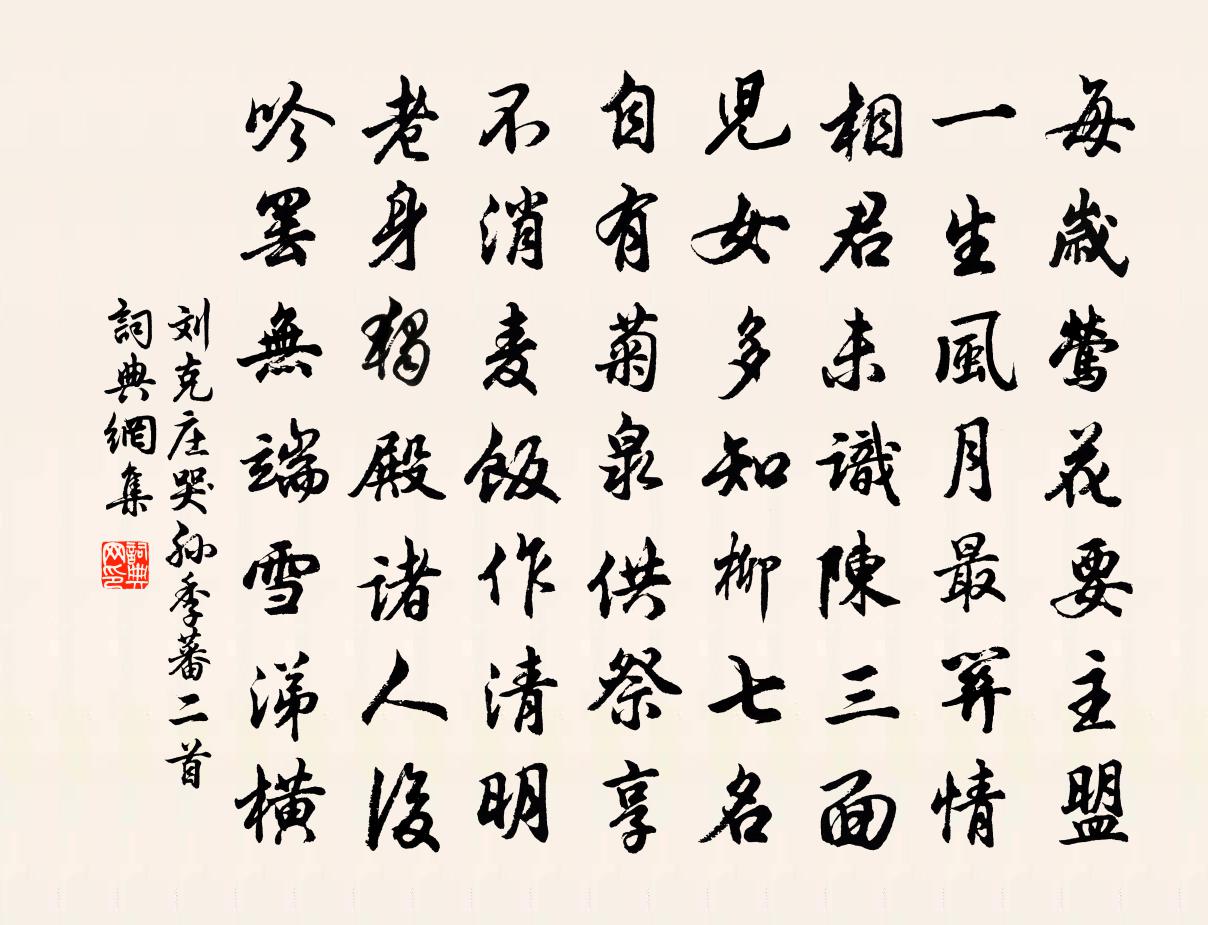 每歲鶯花要主盟
一生風月最關情
相君未識陳三面
兒女多知柳七名
自有菊泉供祭享
不消麦飯作清明
老身獨殿諸人後
吟罷無端雪涕橫
刘克庄哭孙季蕃二首
詞典網集
詞典
网印